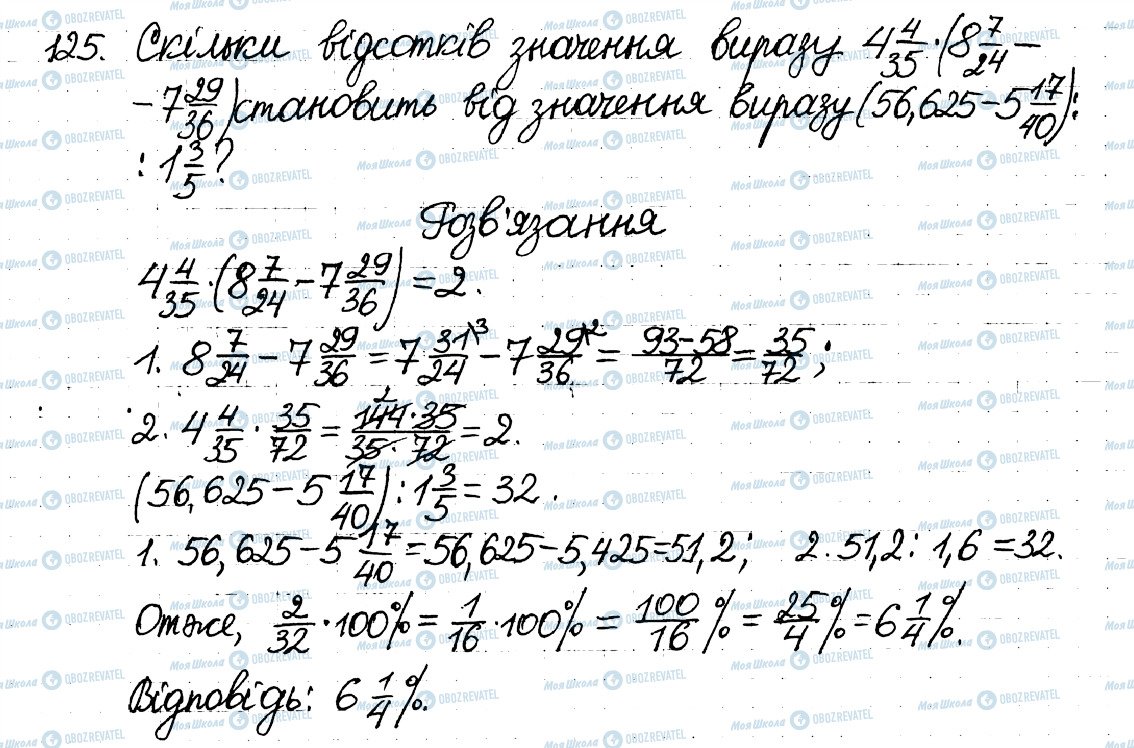 125. Скільки відсотків значення виразу 4 4/35 · (8 7/24 −
− 7 29/36) становить від значення виразу (56,625 − 5 17/40) :
: 1 3/5?
Розв'язання
4 4/35 · (8 7/24 − 7 29/36) = 2.
1. 8 7/24 − 7 29/36 = 7 31/24 \3 − 7 29/36 \2 = (93 − 58)/72 = 35/72;
2. 4 4/35 · 35/72 = (144 · 35)/(35 · 72) 2 = 2.
(56,625 − 5 17/40) : 1 3/5 = 32.
1. 56,625 − 5 17/40 = 56,625 − 5,425 = 51,2; 2. 51,2 : 1,6 = 32.
Отже, 2/32 · 100% = 1/16 · 100% = 100/16 % = 25/4 % = 6 1/4 %.
Відповідь: 6 1/4 %.
Моя Школа OBOZREVATEL